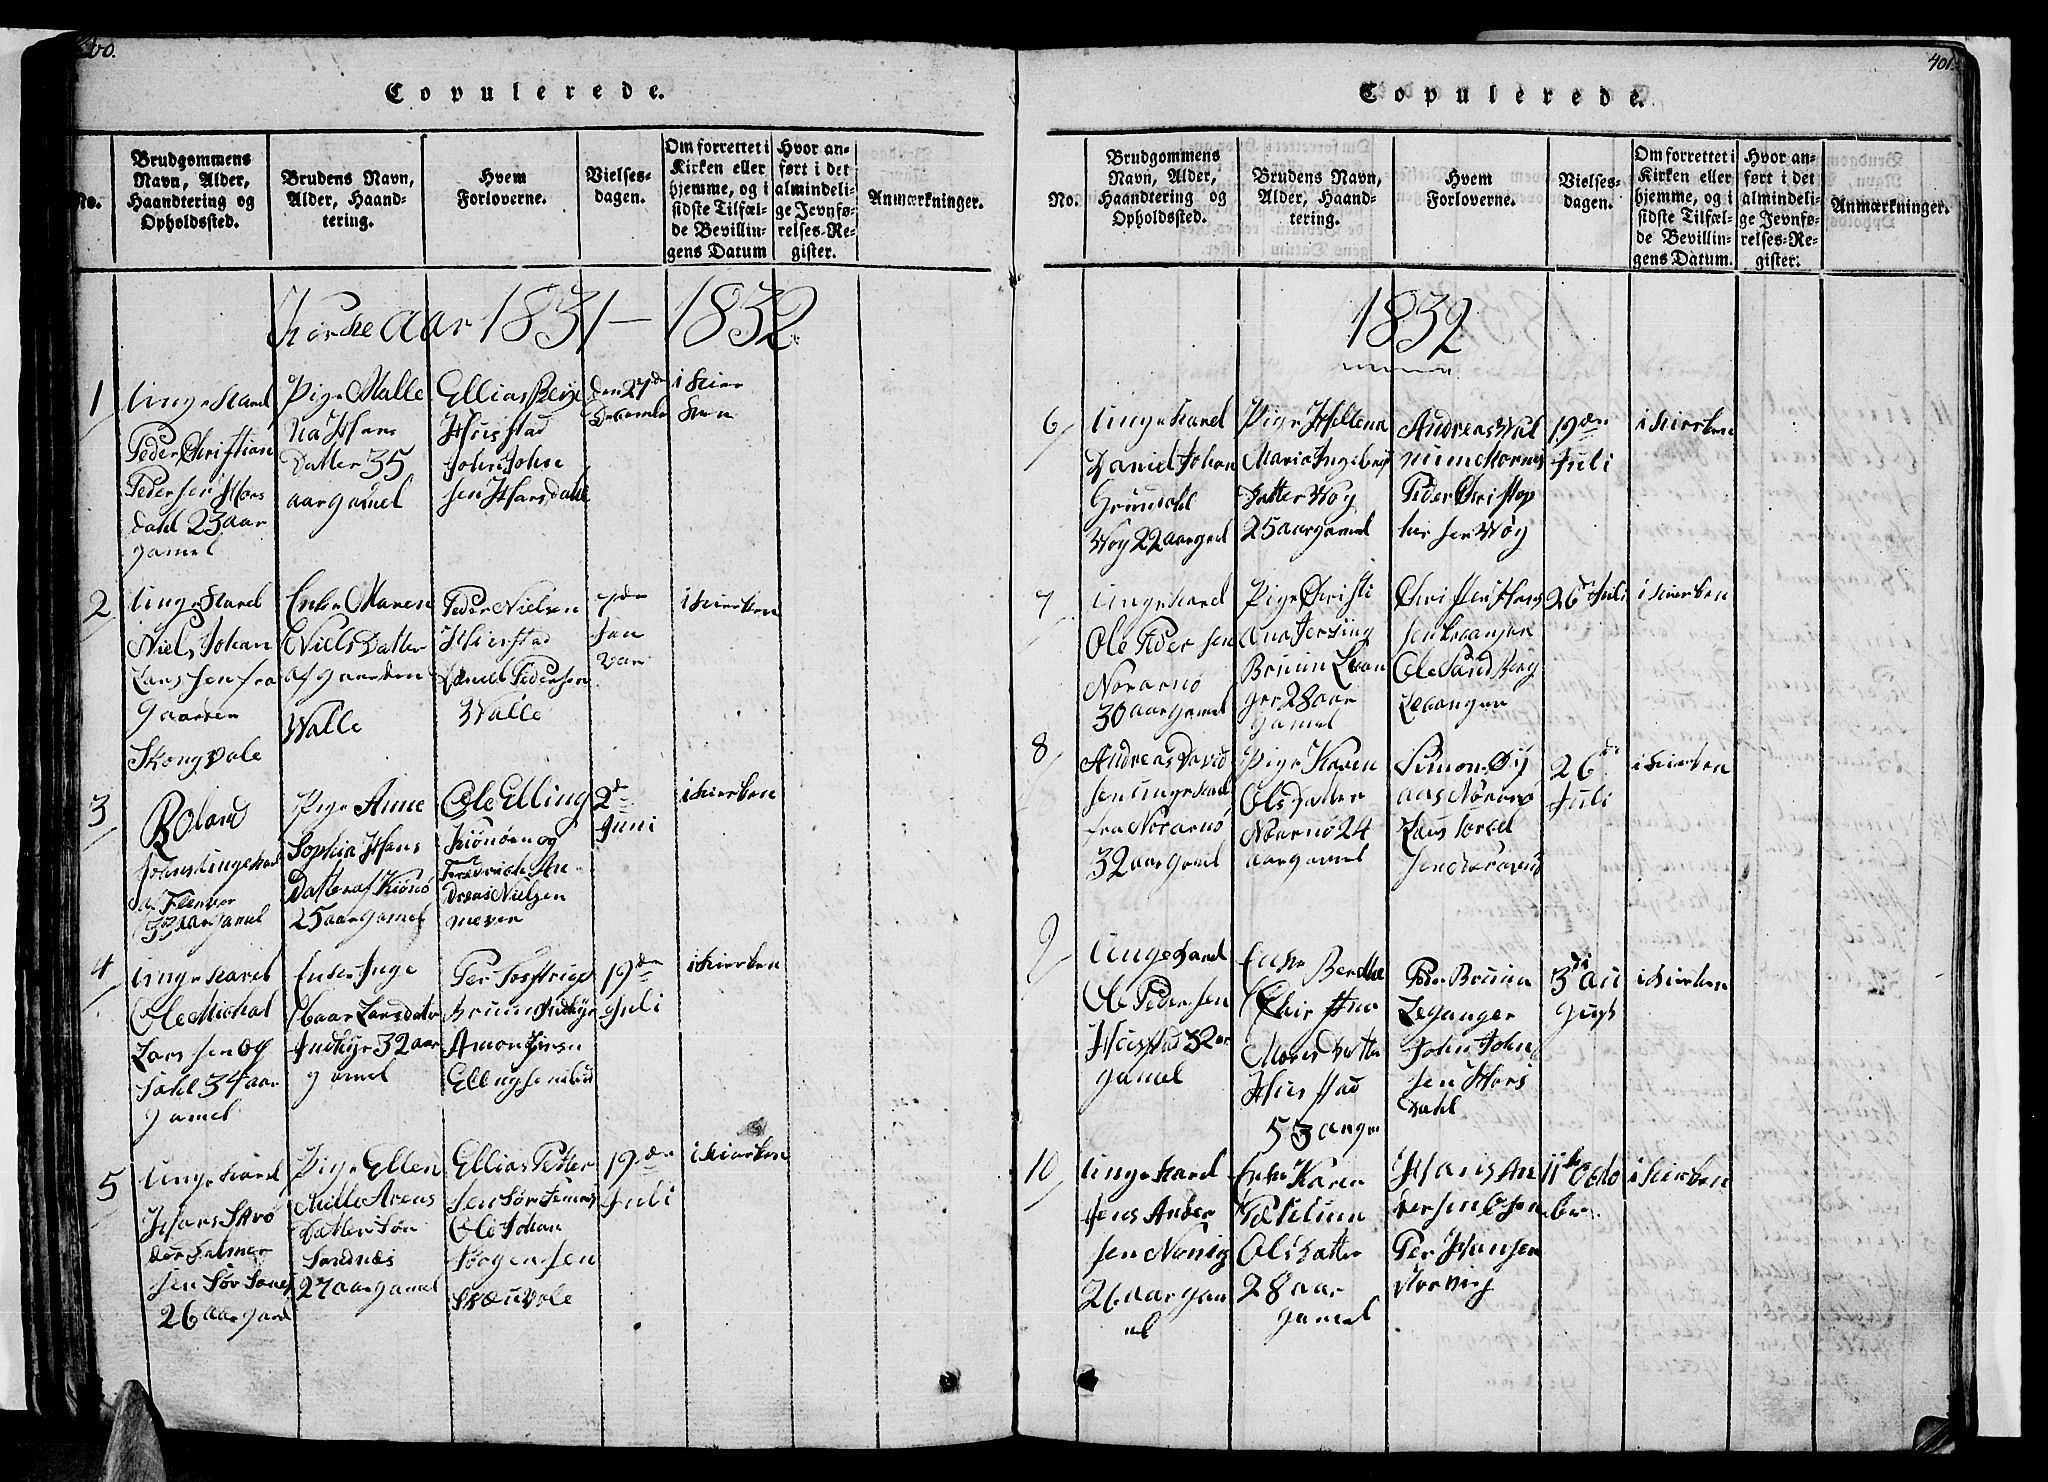 00.
Copulerede.
No.
Brudgommens
Navn, Alder,
Haandtering og
Opholdssted.
Brudens Navn,
Alder, Haand-
tering.
Hvem
Forloverne.
Vielses-
dagen.
Om forrettet i
Kirken eller
hjemme, og i
sidste Tilfæl-
de Bevillin-
gens Datum
Hvor an-
ført i det
almindeli-
ge Jevnfø-
relses-Re-
gister.
Anmærkninger.
Kirke aar 1831 — 1832
1
Unge Karl
Peder Christian
Pedersen Hors
dahl 23 aar
gamel
Pige Malle
na Hans
Datter 35
aar gamel
Ellias
Husstad
John John
sen Horsdahl
den 27de
Decemb
i Kier
ken
2
Unge Karl
Niels Johan
Lars sen fra
gaarden
Skongvole
Enke Maren
Niels Datter
af gaarden
Walle
Peder Nielsen
Husstad
Daniel Pedersen
Walle
7de
Jan
var
i Kierken
3
Roland
ungekarl
33 aar gamel
Pige Anne
Sophia Hans
Datter af Kionø
25 aar gamel
Ole Elling
Kionøen og
Fredrich An
dreas Nielsen
mever
2de
Juni
i Kierken
4
Unge Karl
Ole Michal
Lars sen
dahl 34 aar
gamel
Enke Inge
baar Larsdater
Indhyr 32 aar
gamel
Per
Bruun Indhyr
Amon
Ellingsen
19de
Juli
i Kierken
5
Unge Karl
Hans Skrø
der Falmer
sen Sør
26 aar gamel
Pige Ellen
Mille Arens
Datter Sør
Sandnæs
27 aar gamel
Ellias Petter
sen Sør
Ole Johan
Jørgensen
Skæuvole
19de
Juli
i Kierken
401.
Copulerede.
No.
Brudgommens
Navn, Alder,
Haandtering og
Opholdssted.
Brudens Navn,
Alder, Haand-
tering.
Hvem
Forloverne.
Vielses-
dagen.
Om forrettet i
Kirken eller
hjemme, og i
sidste Tilfæl-
de Bevillin-
gens Datum.
Hvor an-
ført i det
almindeli-
ge Jevnfø-
relses-Re-
gister.
Anmærkninger.
1832
6
Unge Karl
Daniel Johan
Grundahl
Wog 22 aar gml
Pige Hellena
Maria Ingebrigt
Datter Wog
25 aar gamel
Andreas Wal
num Hornes
Peder Christop
hersen Wøg
19de
Juli
i Kierken
7
Unge Karl
Ole Peder sen
Norarnø
30 aar gamel
Pige Christi
ana
Bruun Levan
ger 28 aar
gamel
Christen Hans
sen Levanger
Ole Sandberg
Levanger
26de Juli
i Kierken
8
Andreas David
sen unge Karl
fra Norarnø
32 aar gamel
Pige Karen
Ols Datter
Norarnø 24
aar gamel
Simon
Norarnø
Lars
sen Norarnø
26de
Juli
i Kierken
9
Unge Karl
Ole Peder sen
Husstad 32 ar
gamel
Enke Berethe
Mons Datter
Husstad
53 ar gm
Peder Bruun
Leganger
John John
sen Hors
Dahl
3di Au
gust
i Kierken
10
Unge Karl
Jens Ander
sen Norvig
26 aar gam
el
Enke Karen
Ols Datter
28 aar
gamel
Hans An
dersen
Per Hansen
Norvig
11te Octo
ber
i Kierken